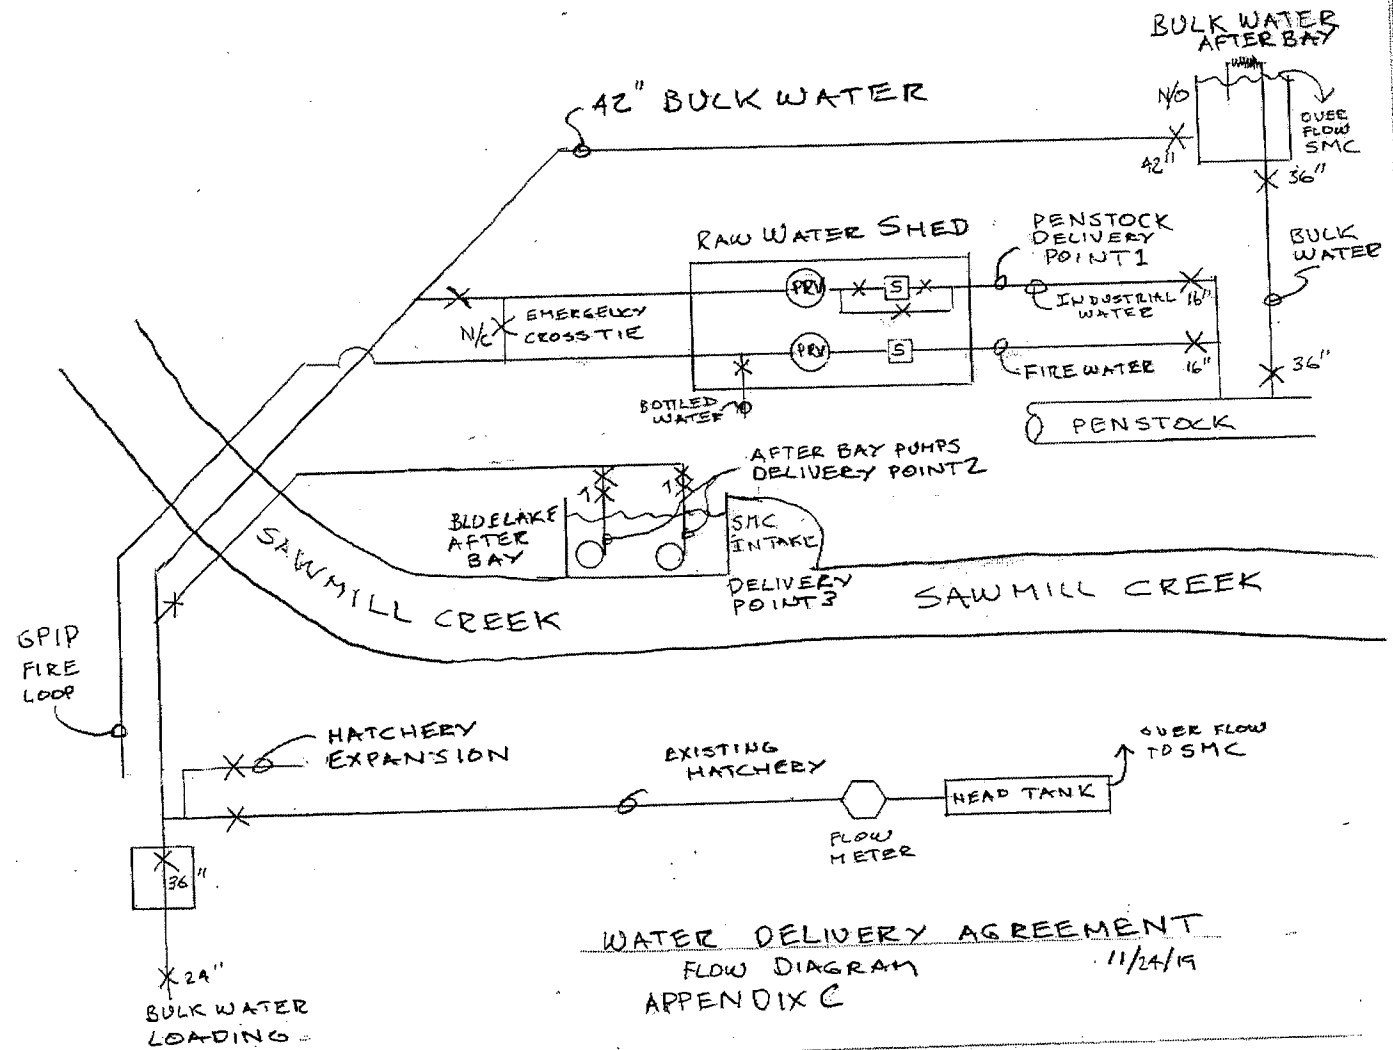 BULK WATER
AFTER BAY
42" BULK WATER
N/O
OVER
FLOW
SMC
42"
36"
RAW WATER SHED
PENSTOCK
DELIVERY
POINT 1
BULK
WATER
PRV
S
INDUSTRIAL
WATER
16"
N/C
EMERGENCY
CROSSTIE
PRV
S
FIRE WATER
16"
36"
BOTTLED
WATER
PENSTOCK
AFTER BAY PUMPS
DELIVERY POINT 2
BLUELAKE
AFTER
BAY
SMC
INTAKE
DELIVERY
POINT 3
SAWMILL CREEK
SAWMILL CREEK
GPIP
FIRE
LOOP
HATCHERY
EXPANSION
EXISTING
HATCHERY
OVER FLOW
TO SMC
HEAD TANK
FLOW
METER
36"
24"
BULK WATER
LOADING
WATER DELIVERY AGREEMENT
FLOW DIAGRAM
11/24/19
APPENDIX C